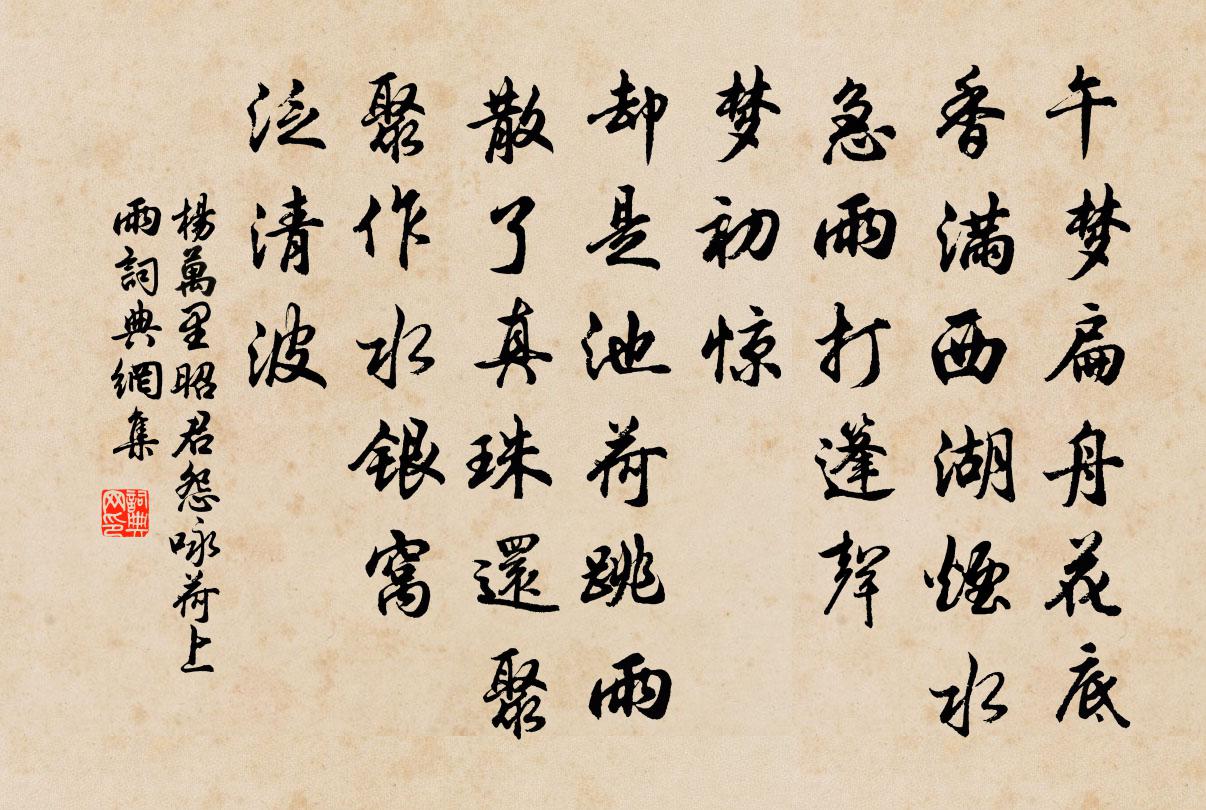 午梦扁舟花底
香满西湖煙水
急雨打篷聲
梦初惊
却是池荷跳雨
散了真珠還聚
聚作水銀窩
泛清波
楊萬里昭君怨咏荷上
雨詞典網集
詞典网印